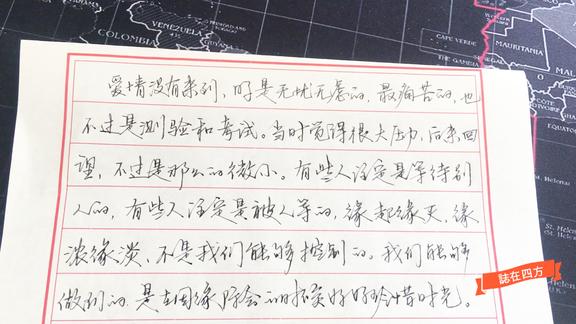 VENEZUELA
COLOMBIA
CAPE VERDE
MAURITANIA
THE GAMBIA
爱情没有来到，日子是无忧无虑的，最痛苦的，也
不过是测验和考试。当时觉得很大压力，后来回
望，不过是那么的微小。有些人注定是等待别
人的，有些人注定是被人等的，缘起缘灭，缘
浓缘淡，不是我们能够控制的。我们能够
做到的，是在因缘际会的时候好好珍惜时光。
誌在四方